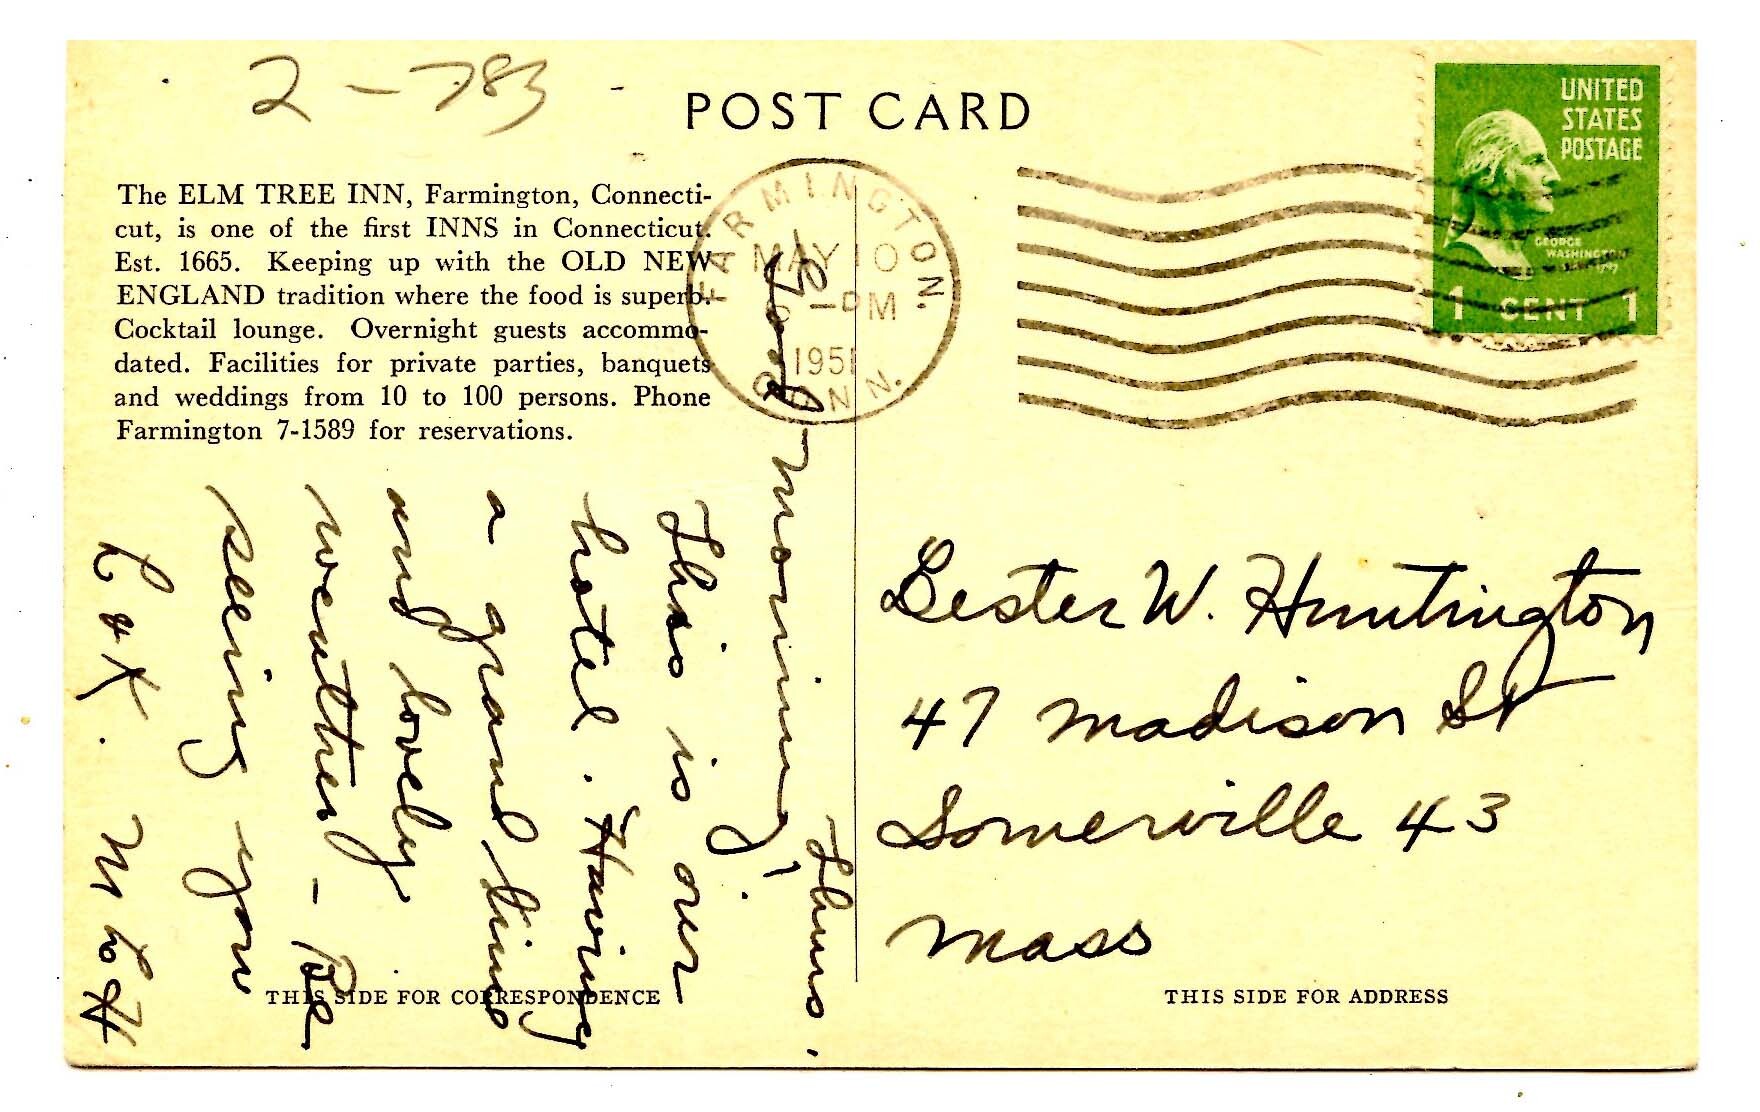 2-783
POST CARD
UNITED
STATES
POSTAGE
GEORGE
WASHINGTON
1 CENT 1
FARMINGTON.
MAY 10
-PM
1951
CONN.
The ELM TREE INN, Farmington, Connecti-
cut, is one of the first INNS in Connecticut.
Est. 1665. Keeping up with the OLD NEW
ENGLAND tradition where the food is superb.
Cocktail lounge. Overnight guests accommo-
dated. Facilities for private parties, banquets
and weddings from 10 to 100 persons. Phone
Farmington 7-1589 for reservations.
Thurs.
Good Morning,
This is our
hotel. Having
a grand time
and lovely
weather - Be
seeing you
Lester W. Huntington
47 Madison St
Somerville 43
Mass
THIS SIDE FOR CORRESPONDENCE
THIS SIDE FOR ADDRESS